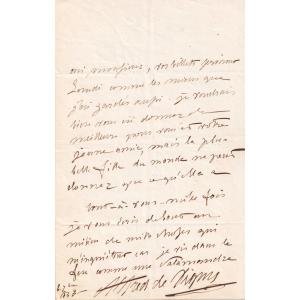 oui, monsieur, vos billets
lundi comme les miens que
j'ai gardés aussi. je voudrais
bien vous en donner de
meilleurs pour vous et votre
jeune amie, mais la plus
belle fille du monde ne peut
donner que ce qu'elle a
tout à vous - mille fois
je vous écris debout au
milieu de mille choses qui
m'inquiètent car je vis dans le
feu comme une salamandre
Alfred de Vigny